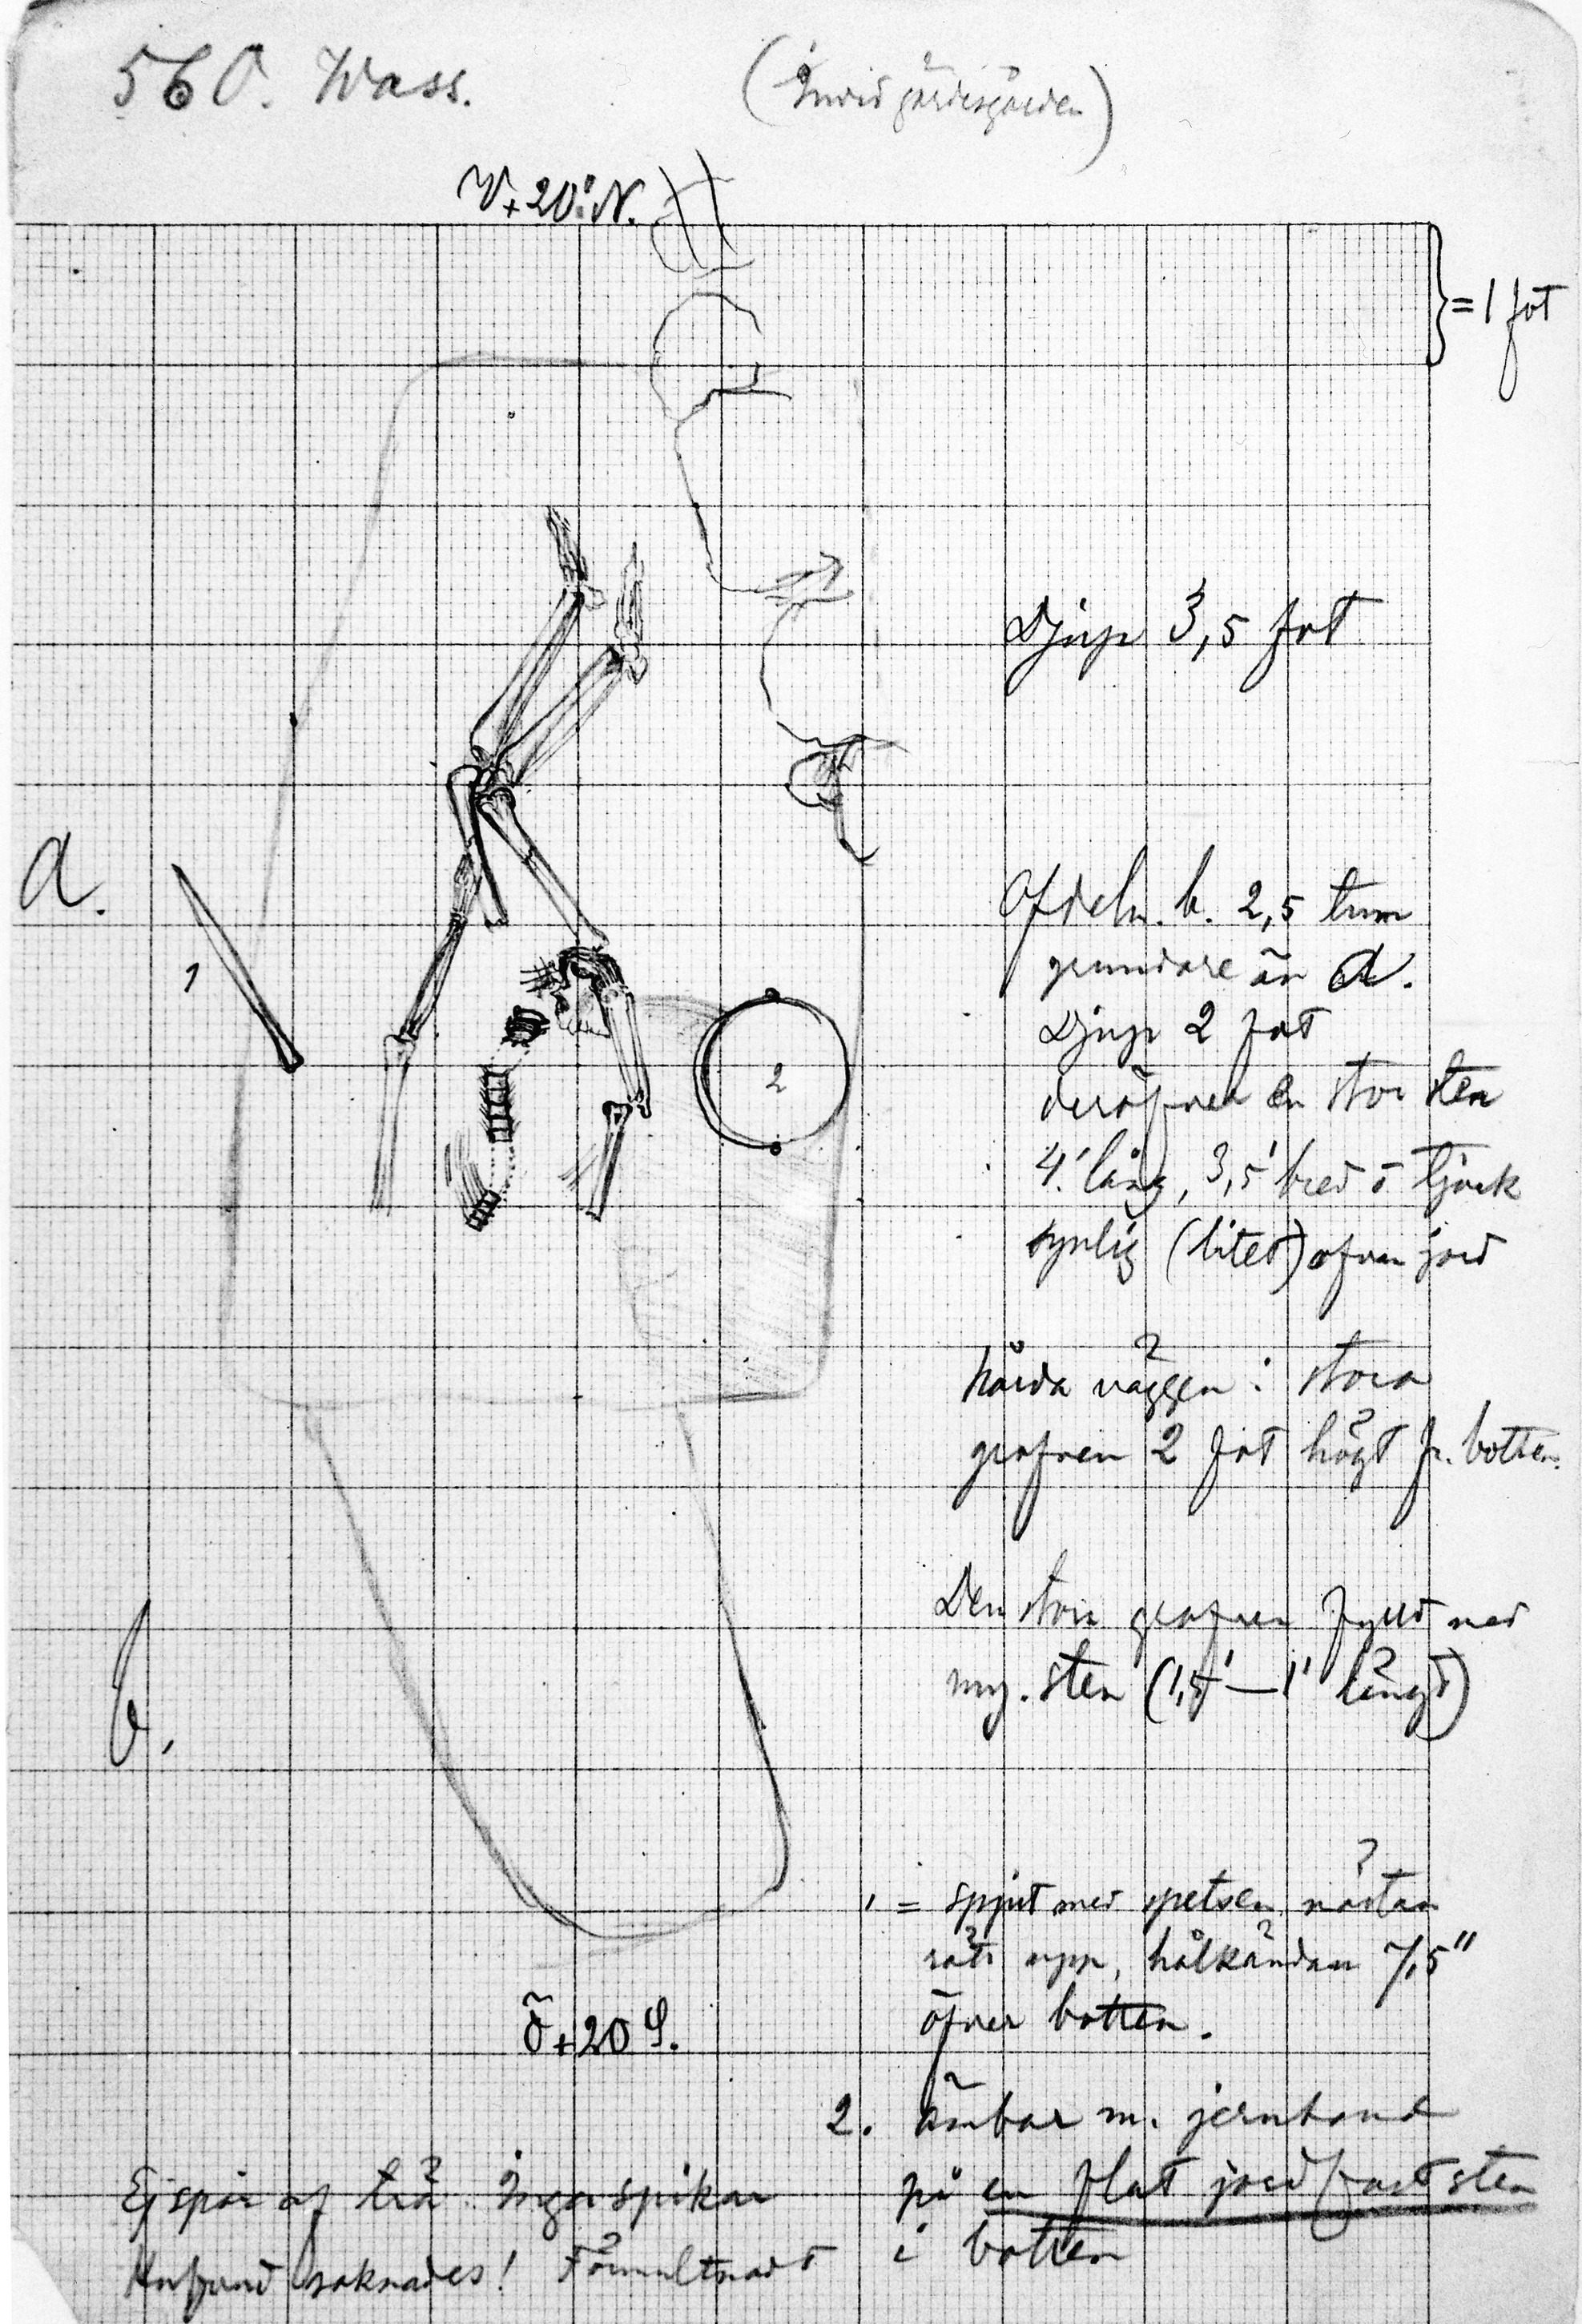 560. Wass.
(Invid gärdesgården)
V+20°N.
= 1 fot
Djup 3,5 fot
a.
1
2
Afdeln. b. 2,5 tum
grundare än a.
Djup 2 fot
deröfver en stor sten
4' lång, 3,5' bred o tjock
synlig (litet) ofvan jord
hårda väggen i stora
grafven 2 fot högt fr. botten.
Den stora grafven fylld med
my. sten (1,5'—1' långd)
b.
1 = spjut med spetsen nästan
rätt upp, hålkändan 7,5"
öfver botten.
Ö+20 S.
2. Ämbar m. jernband
på en flat jordfast sten
i botten
Ej spår af trä. Inga spikar
Hufvud saknades! Förmultnadt